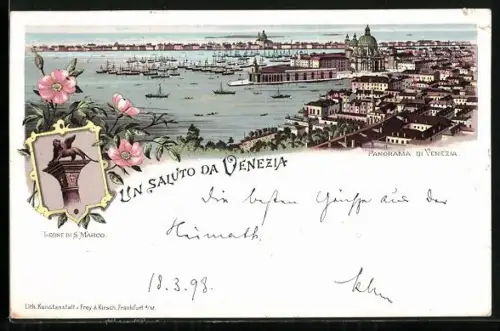 PANORAMA DI VENEZIA
UN SALUTO DA VENEZIA
LEONE DI S. MARCO
Die besten Grüße aus der
Heimath
18.3.98.
Lith. Kunstanstalt v. Frey & Kirsch, Frankfurt a/M.